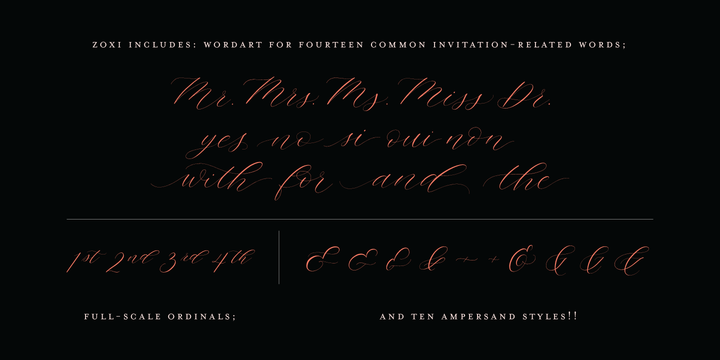 ZOXI INCLUDES: WORDART FOR FOURTEEN COMMON INVITATION-RELATED WORDS;
Mr. Mrs. Ms. Miss Dr.
yes no si oui non
with for and the
1st 2nd 3rd 4th & & & & ~ + & & & &
FULL-SCALE ORDINALS;
AND TEN AMPERSAND STYLES!!